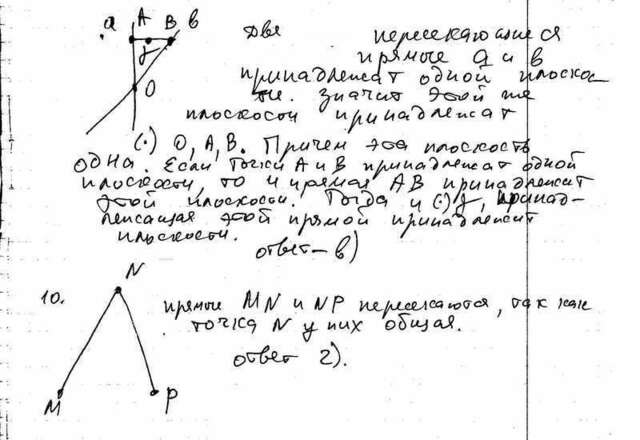 a A B b
γ
O
Две пересекающиеся
прямые a и b
принадлежат одной плоскос
ти. Значит этой же
плоскости принадлежат
(·) O, A, B. Причем эта плоскость
одна. Если точки A и B принадлежат одной
плоскости, то и прямая AB принадлежит
этой плоскости. Тогда и (·) γ, принад-
лежащая этой прямой принадлежит
плоскости.
ответ – в)
N
10.
прямые MN и NP пересекаются, так как
точка N у них общая.
ответ 2).
M P